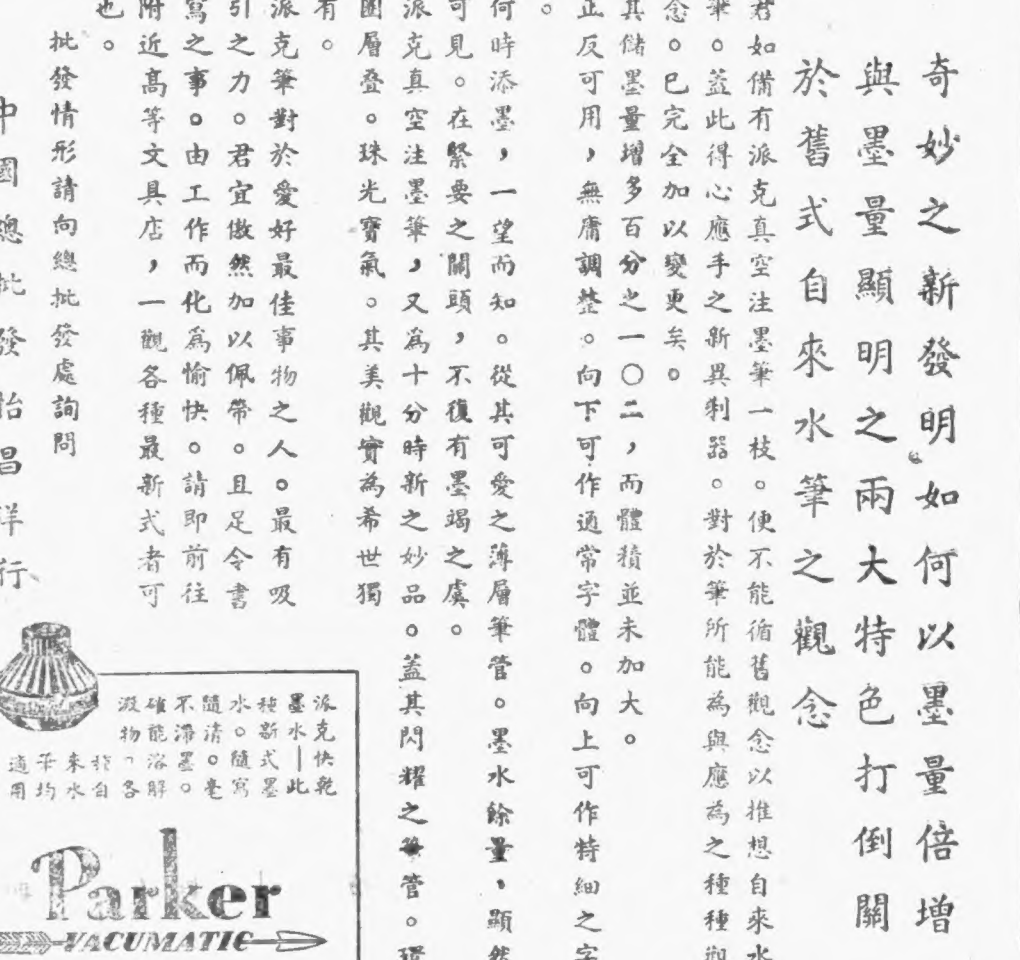 奇妙之新發明如何以墨量倍增
與墨量顯明之兩大特色打倒關
於舊式自來水筆之觀念
君如備有派克真空注墨筆一枝。便不能循舊觀念以推想自來水
筆。蓋此得心應手之新異利器。對於筆所能為與應為之種種觀
念。已完全加以變更矣。
其儲墨量增多百分之一〇二,而體積並未加大。
正反可用,無庸調整。向下可作通常字體。向上可作特細之字
。
何時添墨,一望而知。從其可愛之薄層筆管。墨水餘量,顯然
可見。在緊要之關頭,不復有墨竭之虞。
派克真空注墨筆,又為十分時新之妙品。蓋其閃耀之筆管。環
圈層叠。珠光寶氣。其美觀實為希世獨
有。
派克筆對於愛好最佳事物之人。最有吸
引之力。君宜傲然加以佩帶。且足令書
寫之事。由工作而化為愉快。請即前往
附近高等文具店,一觀各種最新式者可
也。
批發情形請向總批發處詢問
中國總批發怡昌洋行
派克快乾
墨水—此
種新式墨
水。隨寫
隨清。毫
不滯墨。
確能溶解
澱物。各
自
來水
筆均
適用
Parker
VACUMATIC